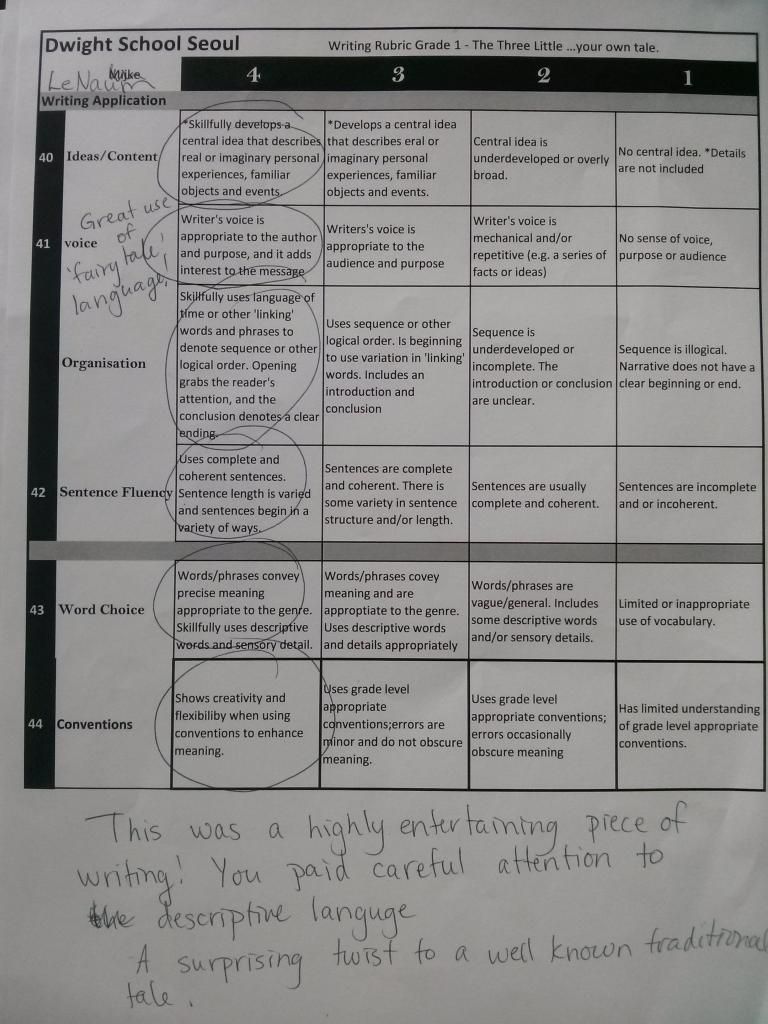 Dwight School Seoul
Writing Rubric Grade 1 - The Three Little ...your own tale.
LeNaum
Mike
4
3
2
1
Writing Application
40
Ideas/Content
*Skillfully develops a
central idea that describes
real or imaginary personal
experiences, familiar
objects and events.
*Develops a central idea
that describes eral or
imaginary personal
experiences, familiar
objects and events.
Central idea is
underdeveloped or overly
broad.
No central idea. *Details
are not included
Great use
of
'fairytale'
language!
41
voice
Writer's voice is
appropriate to the author
and purpose, and it adds
interest to the message
Writers's voice is
appropriate to the
audience and purpose
Writer's voice is
mechanical and/or
repetitive (e.g. a series of
facts or ideas)
No sense of voice,
purpose or audience
Organisation
Skillfully uses language of
time or other 'linking'
words and phrases to
denote sequence or other
logical order. Opening
grabs the reader's
attention, and the
conclusion denotes a clear
ending.
Uses sequence or other
logical order. Is beginning
to use variation in 'linking'
words. Includes an
introduction and
conclusion
Sequence is
underdeveloped or
incomplete. The
introduction or conclusion
are unclear.
Sequence is illogical.
Narrative does not have a
clear beginning or end.
42
Sentence Fluency
Uses complete and
coherent sentences.
Sentence length is varied
and sentences begin in a
variety of ways.
Sentences are complete
and coherent. There is
some variety in sentence
structure and/or length.
Sentences are usually
complete and coherent.
Sentences are incomplete
and or incoherent.
43
Word Choice
Words/phrases convey
precise meaning
appropriate to the genre.
Skillfully uses descriptive
words and sensory detail.
Words/phrases covey
meaning and are
approptiate to the genre.
Uses descriptive words
and details appropriately
Words/phrases are
vague/general. Includes
some descriptive words
and/or sensory details.
Limited or inappropriate
use of vocabulary.
44
Conventions
Shows creativity and
flexibiliby when using
conventions to enhance
meaning.
Uses grade level
appropriate
conventions;errors are
minor and do not obscure
meaning.
Uses grade level
appropriate conventions;
errors occasionally
obscure meaning
Has limited understanding
of grade level appropriate
conventions.
This was a highly entertaining piece of
writing! You paid careful attention to
the descriptive languge
A surprising twist to a well known traditional
tale.